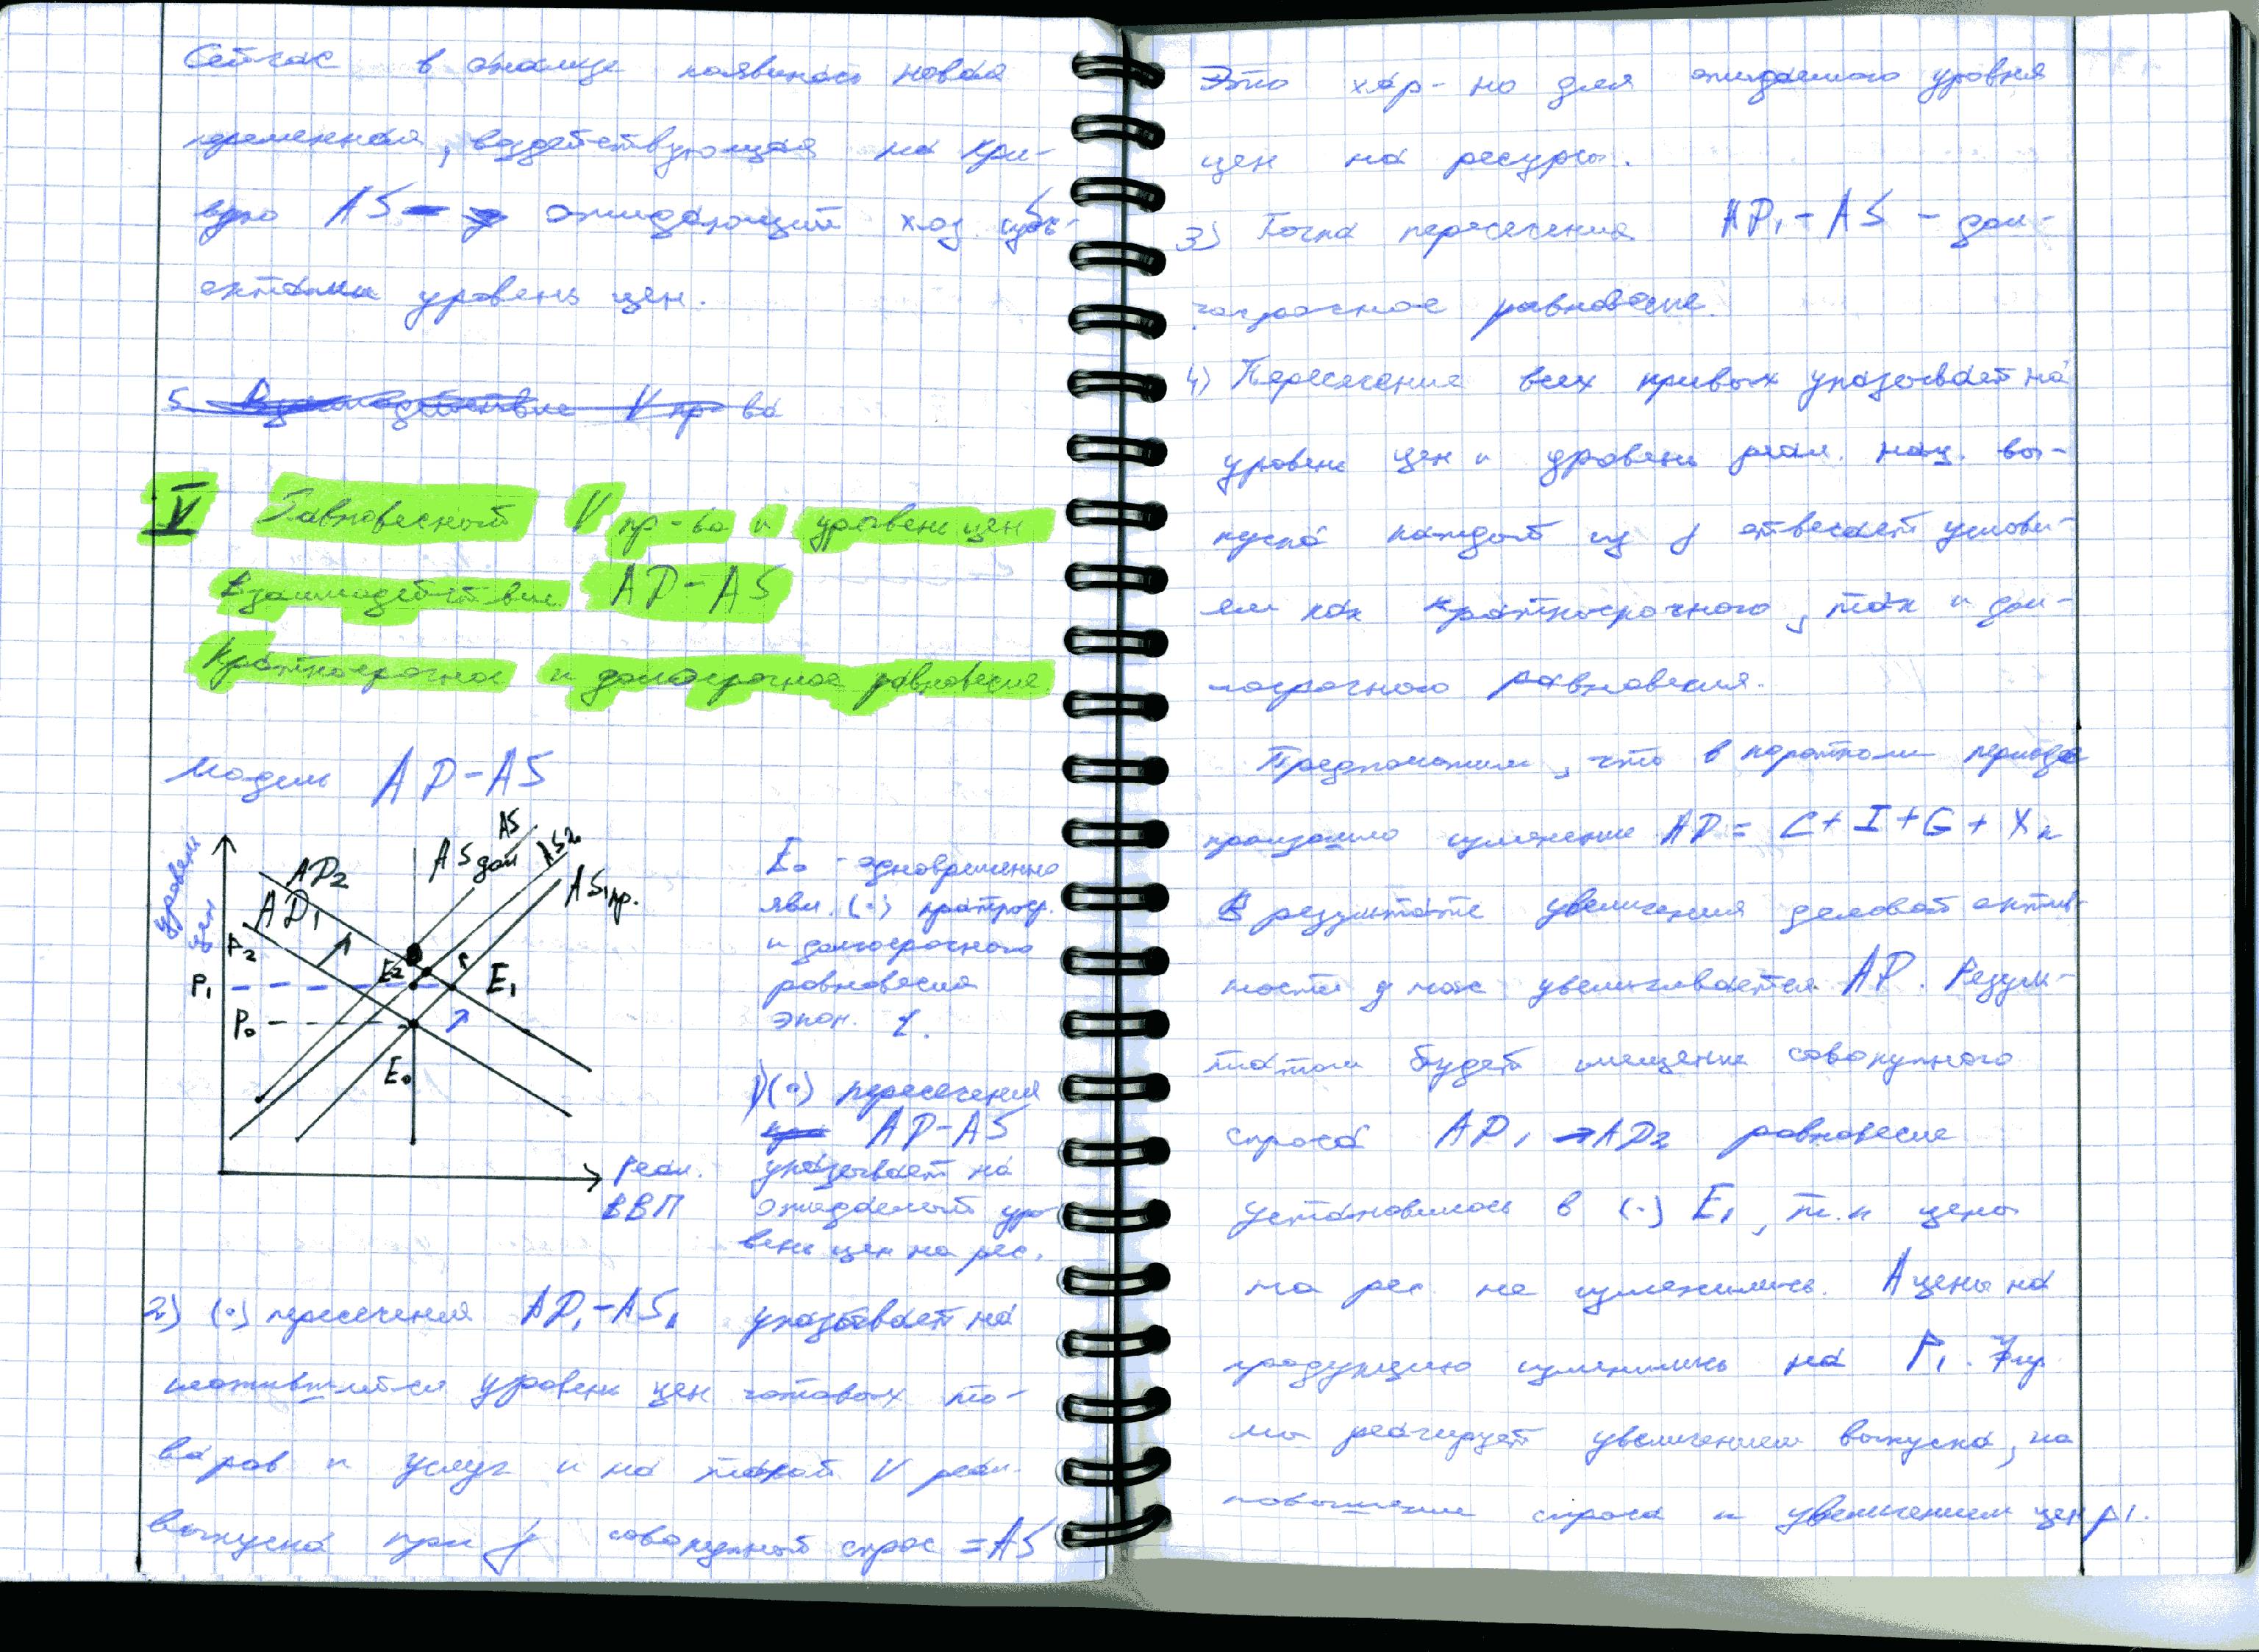 Сейчас в анализе появилась новая
переменная, воздействующая на кри-
вую AS - ожидающий хоз. субъ-
ектами уровень цен.
5. Взаимодействие V пр-ва
V Равновесный V пр-ва и уровень цен
Взаимодействие AD-AS
Краткосрочное и долгосрочное равновесие.
Модель AD-AS
Уровень
цен
AD2
AD1
AS дол
AS
AS2
AS1 кр.
P2
P1
P0
E2
E1
E0
Реал.
ВВП
E0 - одновременно
явл. (·) краткоср.
и долгосрочного
равновесия
экон.
1) (·) пересечения
AD-AS
указывает на
ожидаемый уро-
вень цен на рес.
2) (·) пересечения AD1-AS1 указывает на
сложившийся уровень цен готовых то-
варов и услуг и на такой V реал.
выпуска при совокупный спрос = AS
Это хар-но для ожидаемого уровня
цен на ресурсы.
3) Точка пересечения AD1-AS - дол-
госрочное равновесие.
4) Пересечение всех кривых указывает на
уровень цен и уровень реал. нац. вы-
пуска каждый из отвечает услови-
ям как краткосрочного, так и дол-
госрочного равновесия.
Предположим, что в кратком периоде
произошло изменение AD = C+I+G+Xn
В результате увеличения деловой актив-
ности у нас увеличивается AD. Резуль-
татом будет смещение совокупного
спроса AD1 → AD2 равновесие
установилось в (·) E1, т.к цены
на рес не изменились. А цены на
продукцию изменились на P1. Фир
мы реагирует увеличением выпуска, на
повышение спроса и увеличением цен P1.